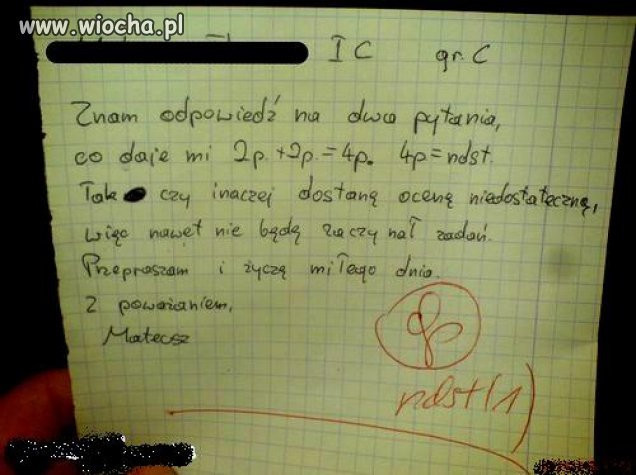 www.wiocha.pl
I C gr. C
Znam odpowiedź na dwa pytania,
co daje mi 2p.+2p.=4p. 4p=ndst.
Tak czy inaczej dostanę ocenę niedostateczną,
więc nawet nie będę zaczynał zadań.
Przepraszam i życzę miłego dnia.
Z poważaniem,
Mateusz
ndst(1)